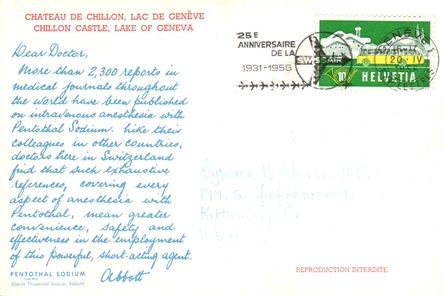 CHATEAU DE CHILLON, LAC DE GENÈVE
CHILLON CASTLE, LAKE OF GENEVA
Dear Doctor,
More than 2,300 reports in
medical journals throughout
the world have been published
on intravenous anesthesia with
Pentothal Sodium. Like their
colleagues in other countries,
doctors here in Switzerland
find that such exhaustive
references, covering every
aspect of anesthesia with
Pentothal, mean greater
convenience, safety and
effectiveness in the employment
of this powerful, short-acting agent.
Abbott
PENTOTHAL SODIUM
(Sterile Thiopental Sodium, Abbott)
25E
ANNIVERSAIRE
DE LA
1931-1956
SWISSAIR
10 HELVETIA
20.IV
U.S.A.
REPRODUCTION INTERDITE